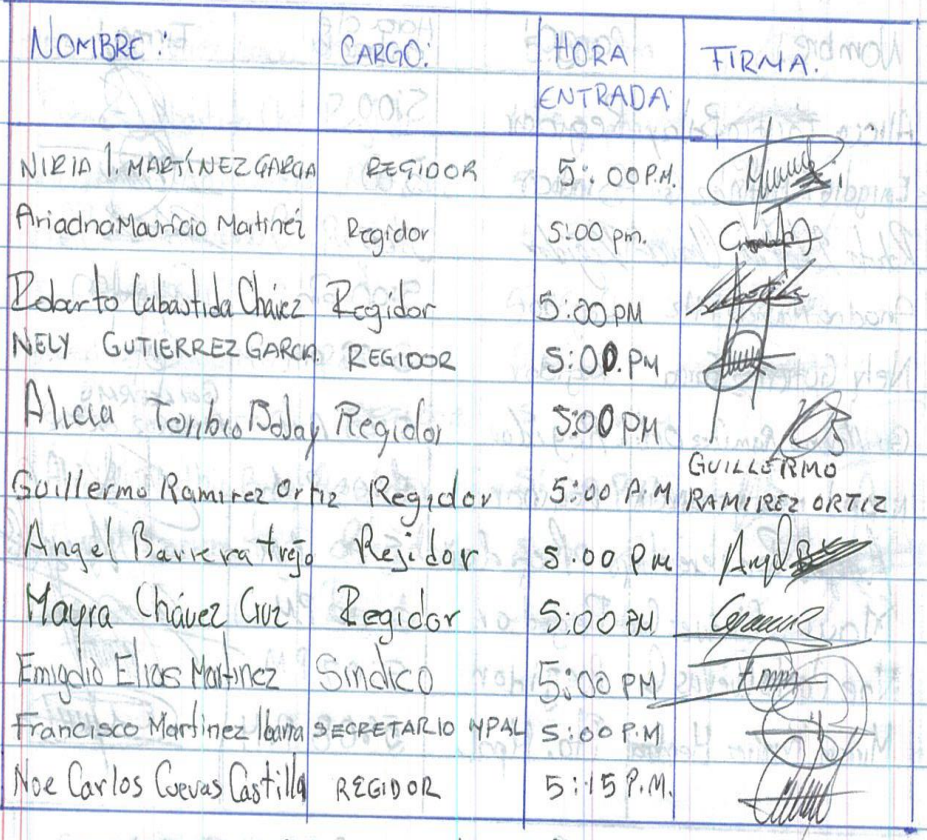 NOMBRE: CARGO: HORA ENTRADA: FIRMA.
NIRIA I. MARTÍNEZ GARCIA REGIDOR 5:00 P.M.
Ariadna Mauricio Martinez Regidor 5:00 pm.
Roberto Labastida Cháirez Regidor 5:00 PM
NELY GUTIERREZ GARCIA REGIDOR 5:00.PM
Alicia Toribio Regidor 5:00 PM
Guillermo Ramirez Ortiz Regidor 5:00 A.M GUILLERMO RAMIREZ ORTIZ
Angel Barrera trejo Rejidor 5:00 Pm
Mayra Chávez Cruz Regidor 5:00 PM
Emigdio Elias Martinez Sindico 5:00 PM
Francisco Martinez Ibarra SECRETARIO MPAL 5:00 P.M
Noe Carlos Cuevas Castilla REGIDOR 5:15 P.M.